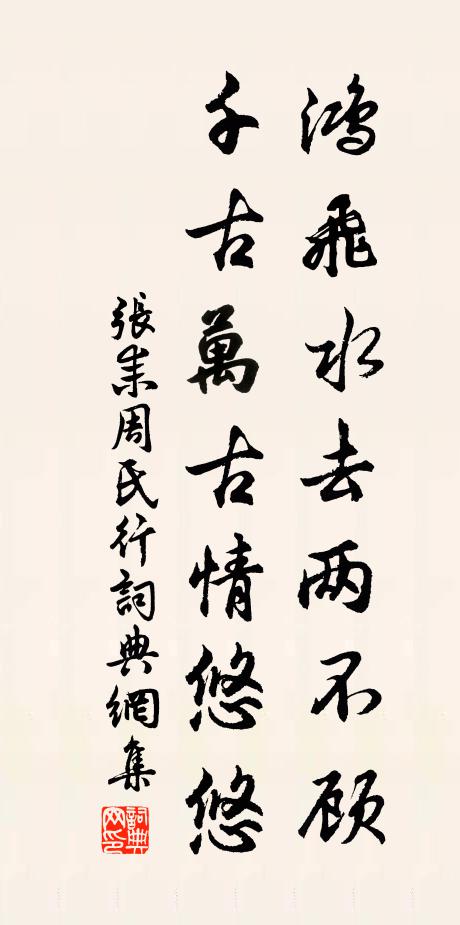 鴻飛水去两不顾
千古萬古情悠悠
張耒周氏行詞典網集
詞典网印